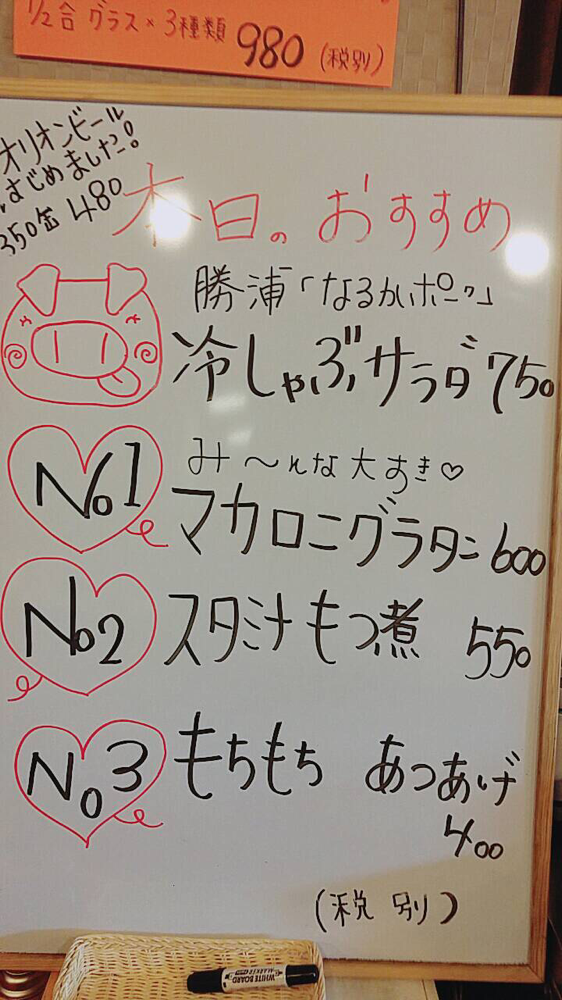 1/2合 グラス×3種類 980 (税別)
オリオンビール
はじめました!
350缶 480
本日のおすすめ
勝浦「なるかポーク」
冷しゃぶサラダ 750
No1
み〜んな大すき♡
マカロニグラタン 600
No2
スタミナもつ煮 550
No3
もちもち あつあげ
400
(税別)
WHITE BOARD
MARKER